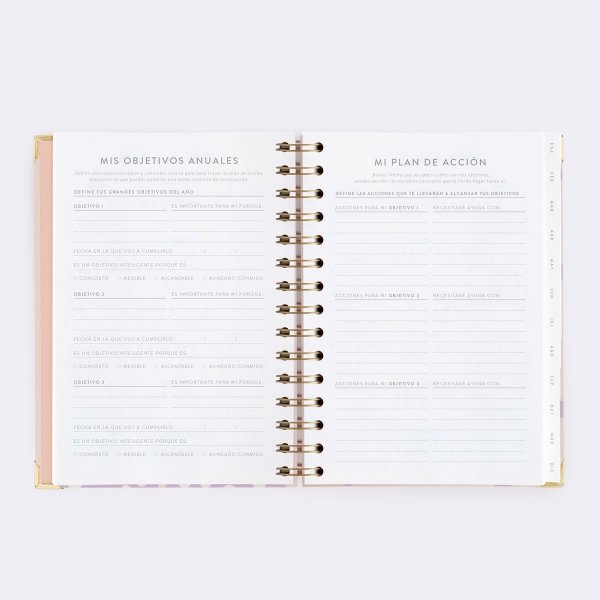 MIS OBJETIVOS ANUALES
Definir unos objetivos claros y concretos será tu guía para trazar tu plan de acción.
Asegúrate de que puedas ponerles una fecha concreta de consecución.
DEFINE TUS GRANDES OBJETIVOS DEL AÑO
OBJETIVO 1 ES IMPORTANTE PARA MÍ PORQUE:
FECHA EN LA QUE VOY A CUMPLIRLO: / /
ES UN OBJETIVO INTELIGENTE PORQUE ES:
CONCRETO MEDIBLE ALCANZABLE ALINEADO CONMIGO
OBJETIVO 2 ES IMPORTANTE PARA MÍ PORQUE:
FECHA EN LA QUE VOY A CUMPLIRLO: / /
ES UN OBJETIVO INTELIGENTE PORQUE ES:
CONCRETO MEDIBLE ALCANZABLE ALINEADO CONMIGO
OBJETIVO 3 ES IMPORTANTE PARA MÍ PORQUE:
FECHA EN LA QUE VOY A CUMPLIRLO: / /
ES UN OBJETIVO INTELIGENTE PORQUE ES:
CONCRETO MEDIBLE ALCANZABLE ALINEADO CONMIGO
MI PLAN DE ACCIÓN
¡Bravo! Ahora que ya sabes cuáles son tus objetivos,
puedes escribir las acciones concretas que te harán llegar hasta él.
DEFINE LAS ACCIONES QUE TE LLEVARÁN A ALCANZAR TUS OBJETIVOS
ACCIONES PARA MI OBJETIVO 1 NECESITARÉ AYUDA CON:
ACCIONES PARA MI OBJETIVO 2 NECESITARÉ AYUDA CON:
ACCIONES PARA MI OBJETIVO 3 NECESITARÉ AYUDA CON:
ENE
FEB
MAR
ABR
MAY
JUN
JUL
AGO
SEP
OCT
NOV
DIC